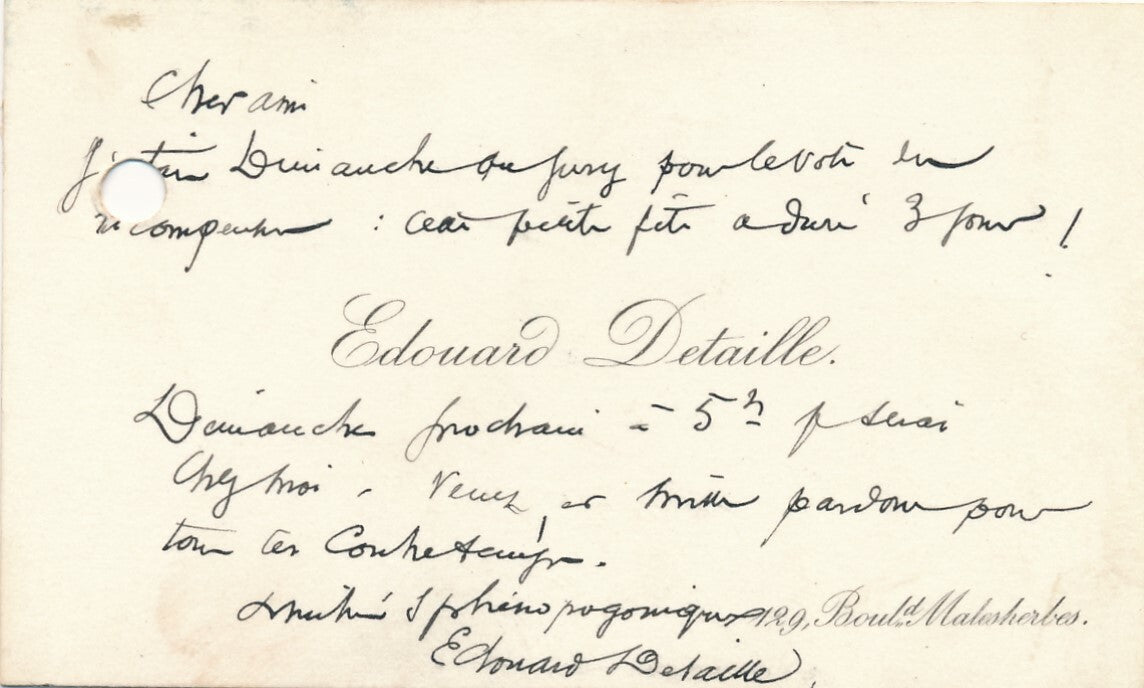 Cher ami
J'étais Dimanche au Jury pour le vote des
récompenses : cette petite fête a duré 3 jours !
Edouard Detaille.
Dimanche prochain à 5h je serai
chez moi - Venez, et mille pardons pour
tous ces Contretemps.
Amitiés Sphénopogoniques
129, Bould. Malesherbes.
Edouard Detaille